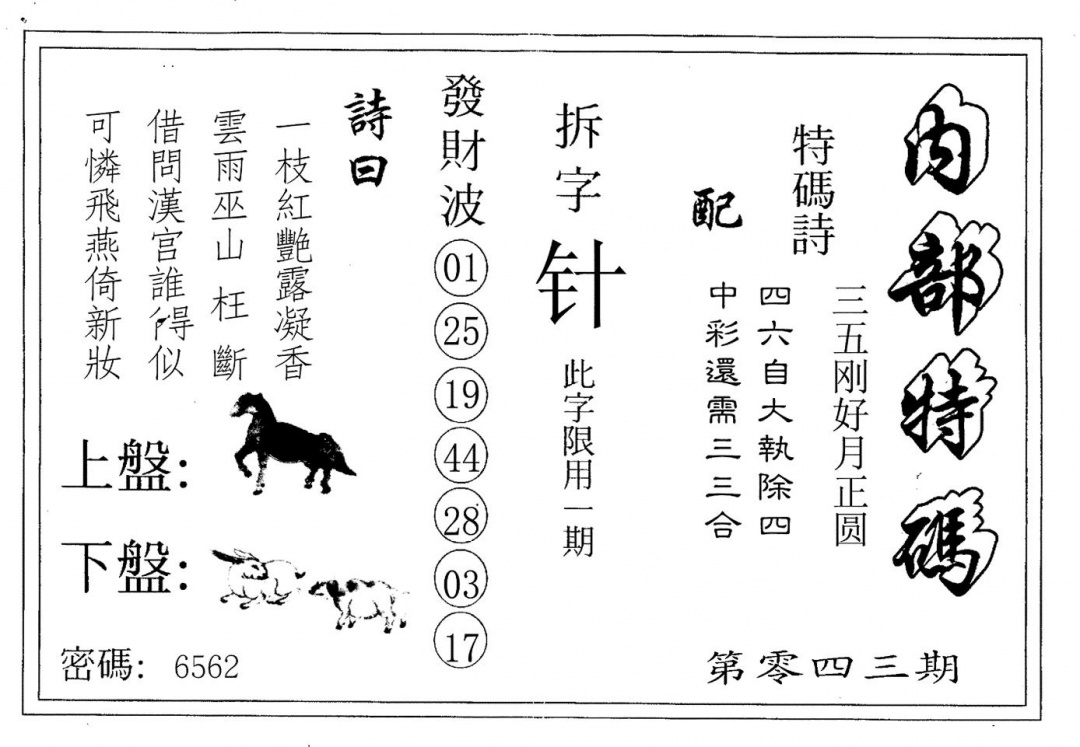 内部特碼
第零四三期
特碼詩
三五刚好月正圆
配
四六自大執除四
中彩還需三三合
拆字
针
此字限用一期
發財波
01
25
19
44
28
03
17
詩曰
一枝紅艷露凝香
雲雨巫山枉斷
借問漢宫誰得似
可憐飛燕倚新妝
上盤：
下盤：
密碼： 6562